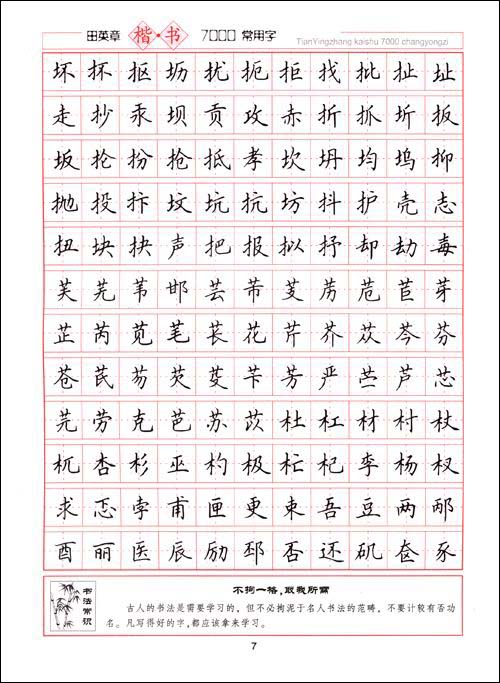 田英章 楷·书 7000 常用字
TianYingzhang kaishu 7000 changyongzi
坏 抔 抠 坜 扰 扼 拒 找 批 扯 址
走 抄 汞 坝 贡 攻 赤 折 抓 圻 扳
坂 抡 扮 抢 抵 孝 坎 坍 均 坞 抑
抛 投 抃 坟 坑 抗 坊 抖 护 壳 志
扭 块 抉 声 把 报 拟 抒 却 劫 毒
芙 芜 苇 邯 芸 芾 芰 苈 苊 苣 芽
芷 芮 苋 芼 苌 花 芹 芥 苁 芩 芬
苍 芪 芴 芡 芟 苄 芳 严 苎 芦 芯
芫 劳 克 芭 苏 苡 杜 杠 材 村 杖
杌 杏 杉 巫 杓 极 杧 杞 李 杨 杈
求 忑 孛 甫 匣 更 束 吾 豆 两 邴
酉 丽 医 辰 励 邳 否 还 矶 奁 豕
书法常识
不拘一格,取我所需
古人的书法是需要学习的,但不必拘泥于名人书法的范畴,不要计较有否功
名。凡写得好的字,都应该拿来学习。
7